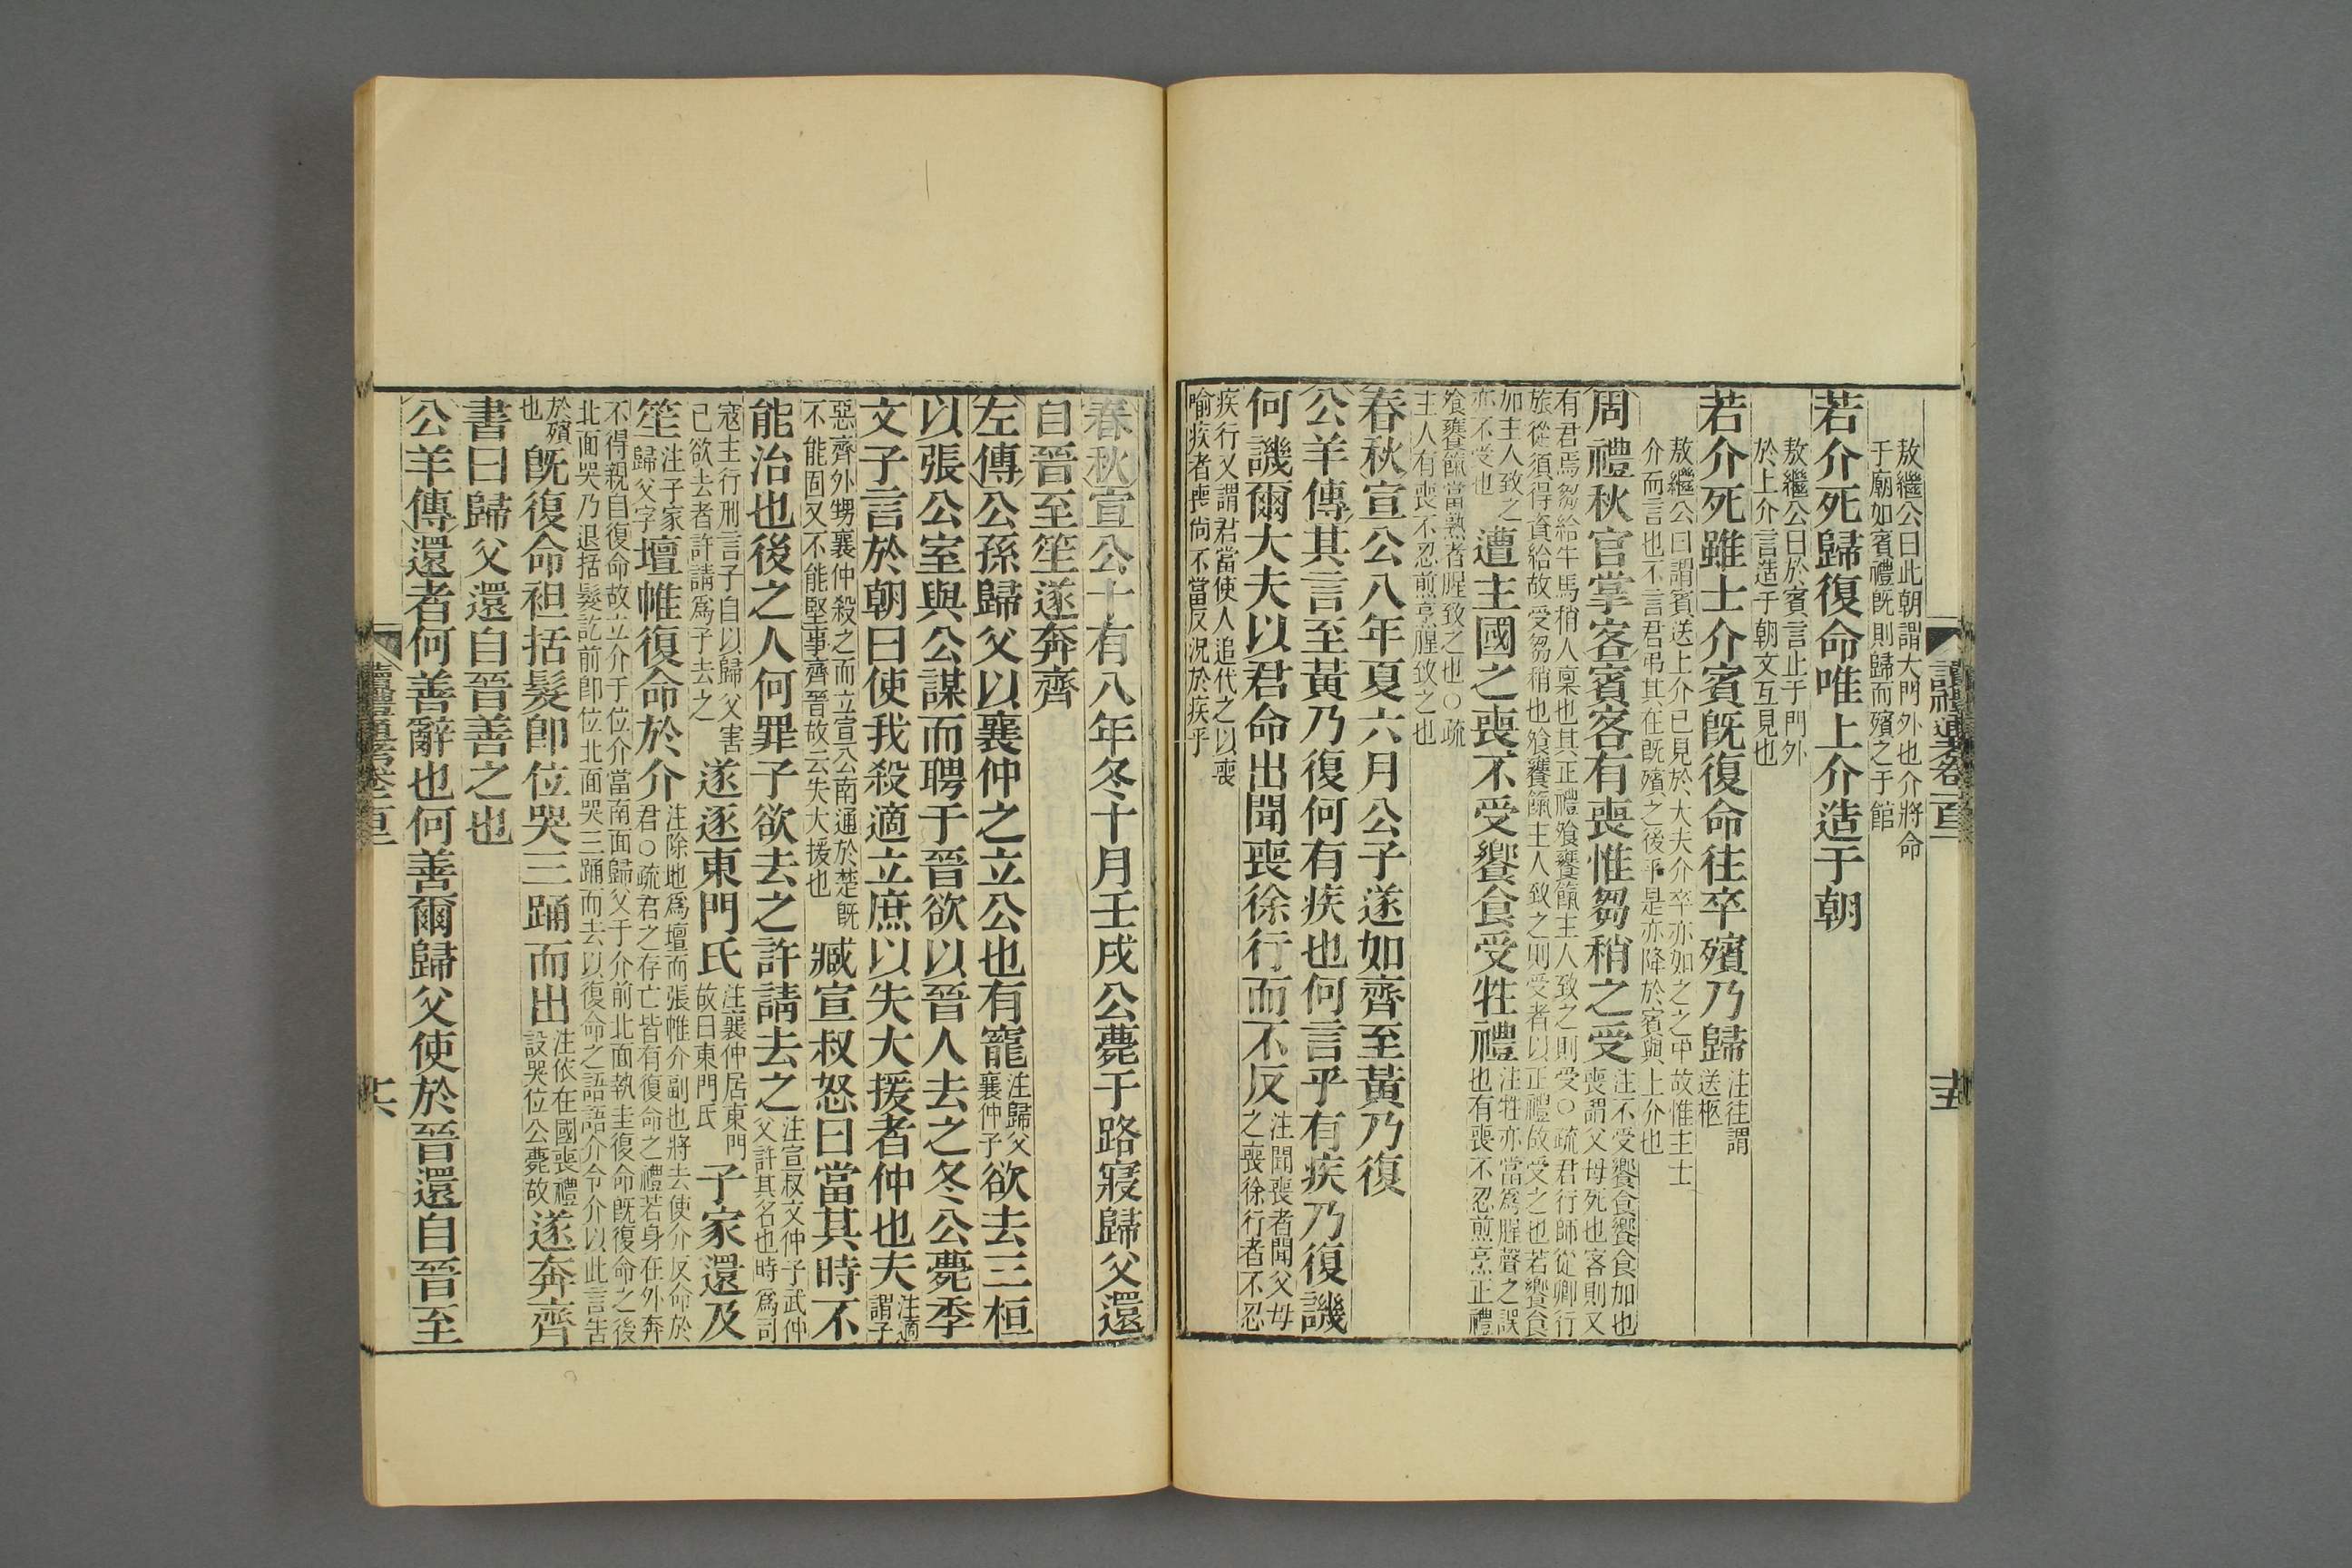 讀禮通考卷一百二
十五
敖繼公曰此朝謂大門外也介將命
于廟如賓禮旣則歸而殯之于館
若介死歸復命唯上介造于朝
敖繼公曰於賓言止于門外
於上介言造于朝文互見也
若介死雖士介賓旣復命往卒殯乃歸
注往謂
送柩
敖繼公曰謂賓送上介已見於大夫介卒亦如之之中故惟主士
介而言也不言君弔其在旣殯之後乎是亦降於賓與上介也
周禮秋官掌客賓客有喪惟芻稍之受
注不受饗食饗食加也
喪謂父母死也客則又
有君焉芻給牛馬稍人稟也其正禮飧饔餼主人致之則受○疏君行師從卿行
旅從須得資給故受芻稍也飧饔餼主人致之則受者以正禮故受之也若饗食
加主人致之
亦不受也
遭主國之喪不受饗食受牲禮
注牲亦當爲腥聲之誤
也有喪不忍煎烹正禮
飧饔餼當熟者腥致之也○疏
主人有喪不忍煎烹腥致之也
春秋宣公八年夏六月公子遂如齊至黃乃復
公羊傳其言至黃乃復何有疾也何言乎有疾乃復譏
何譏爾大夫以君命出聞喪徐行而不反
注聞喪者聞父母
之喪徐行者不忍
疾行又謂君當使人追代之以喪
喻疾者喪尙不當反況於疾乎
春秋宣公十有八年冬十月壬戌公薨于路寢歸父還
自晉至笙遂奔齊
左傳公孫歸父以襄仲之立公也有寵
注歸父
襄仲子
欲去三桓
以張公室與公謀而聘于晉欲以晉人去之冬公薨季
文子言於朝曰使我殺適立庶以失大援者仲也夫
注適
謂子
惡齊外甥襄仲殺之而立宣公南通於楚旣
不能固又不能堅事齊晉故云失大援也
臧宣叔怒曰當其時不
能治也後之人何罪子欲去之許請去之
注宣叔文仲子武仲
父許其名也時爲司
寇主行刑言子自以歸父害
已欲去者許請爲子去之
遂逐東門氏
注襄仲居東門
故曰東門氏
子家還及
笙
注子家
歸父字
壇帷復命於介
注除地爲壇而張帷介副也將去使介反命於
君○疏君之存亡皆有復命之禮若身在外奔
不得親自復命故立介于位介當南面歸父于介前北面執圭復命旣復命之後
北面哭乃退括髮訖前卽位北面哭三踊而去以復命之語語介令介以此言告
於殯
也
旣復命袒括髮卽位哭三踊而出
注依在國喪禮
設哭位公薨故
遂奔齊
書曰歸父還自晉善之也
公羊傳還者何善辭也何善爾歸父使於晉還自晉至
讀禮通考卷一百二
十六